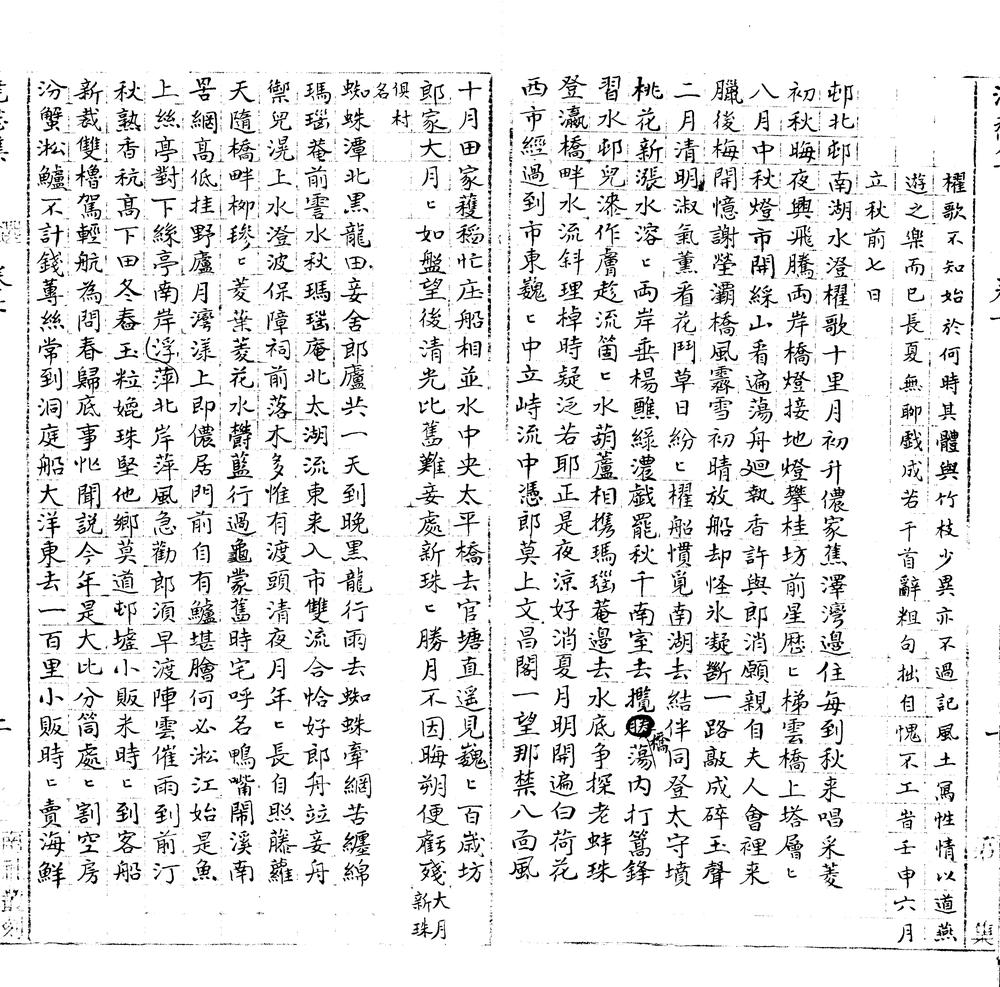 櫂歌不知始於何時其體與竹枝少異亦不過記風土寫性情以道燕
遊之樂而已長夏無聊戲成若干首辭粗句拙自愧不工昔壬申六月
立秋前七日
邨北邨南湖水澄櫂歌十里月初升儂家蕉澤灣邊住每到秋来唱采菱
初秋晦夜興飛騰両岸橋燈接地燈攀桂坊前星歴〻梯雲橋上塔層〻
八月中秋燈市開綵山看遍蕩舟廻執香許與郎消願親自夫人會裡来
臘後梅開憶謝瑩灞橋風霽雪初晴放船却怪氷凝斷一路敲成碎玉聲
二月清明淑氣薫看花鬥草日紛〻櫂船慣覓南湖去結伴同登太守墳
桃花新漲水溶〻両岸垂楊蘸綠濃戯罷秋千南室去攬橋蕩内打篙鋒
習水邨兒漆作膚趁流箇〻水葫蘆相携瑪瑙菴邊去水底争探老蚌珠
登瀛橋畔水流斜理棹時疑泛若耶正是夜涼好消夏月明開遍白荷花
西市經過到市東巍〻中立峙流中憑郎莫上文昌閣一望那禁八面風
十月田家穫稻忙庄船相並水中央太平橋去官塘直遥見巍〻百歲坊
郎家大月〻如盤望後清光比舊難妾處新珠〻勝月不因晦朔便虧殘大月新珠
俱村名
蜘蛛潭北黒龍田妾舍郎廬共一天到晚黒龍行雨去蜘蛛牽網苦纏綿
瑪瑙菴前雪水秋瑪瑙庵北太湖流東来入市雙流合恰好郎舟竝妾舟
禦兒滉上水澄波保障祠前落木多惟有渡頭清夜月年〻長自照藤蘿
天隨橋畔栁毿〻菱葉菱花水欝藍行過龜蒙舊時宅呼名鴨嘴鬧溪南
罟網髙低挂野廬月灣漾上即儂居門前自有鱸堪膾何必淞江始是魚
上絲亭對下絲亭南岸浮萍北岸萍風急勸郎湏早渡陣雲催雨到前汀
秋熟香秔髙下田冬舂玉粒婏珠堅他鄉莫道邨墟小販米時〻到客船
新裁雙櫓駕輕航為問春歸底事忙聞説今年是大比分筒處〻割空房
汾蟹淞鱸不計錢蓴絲常到洞庭船大洋東去一百里小販時〻賣海鮮
二
集